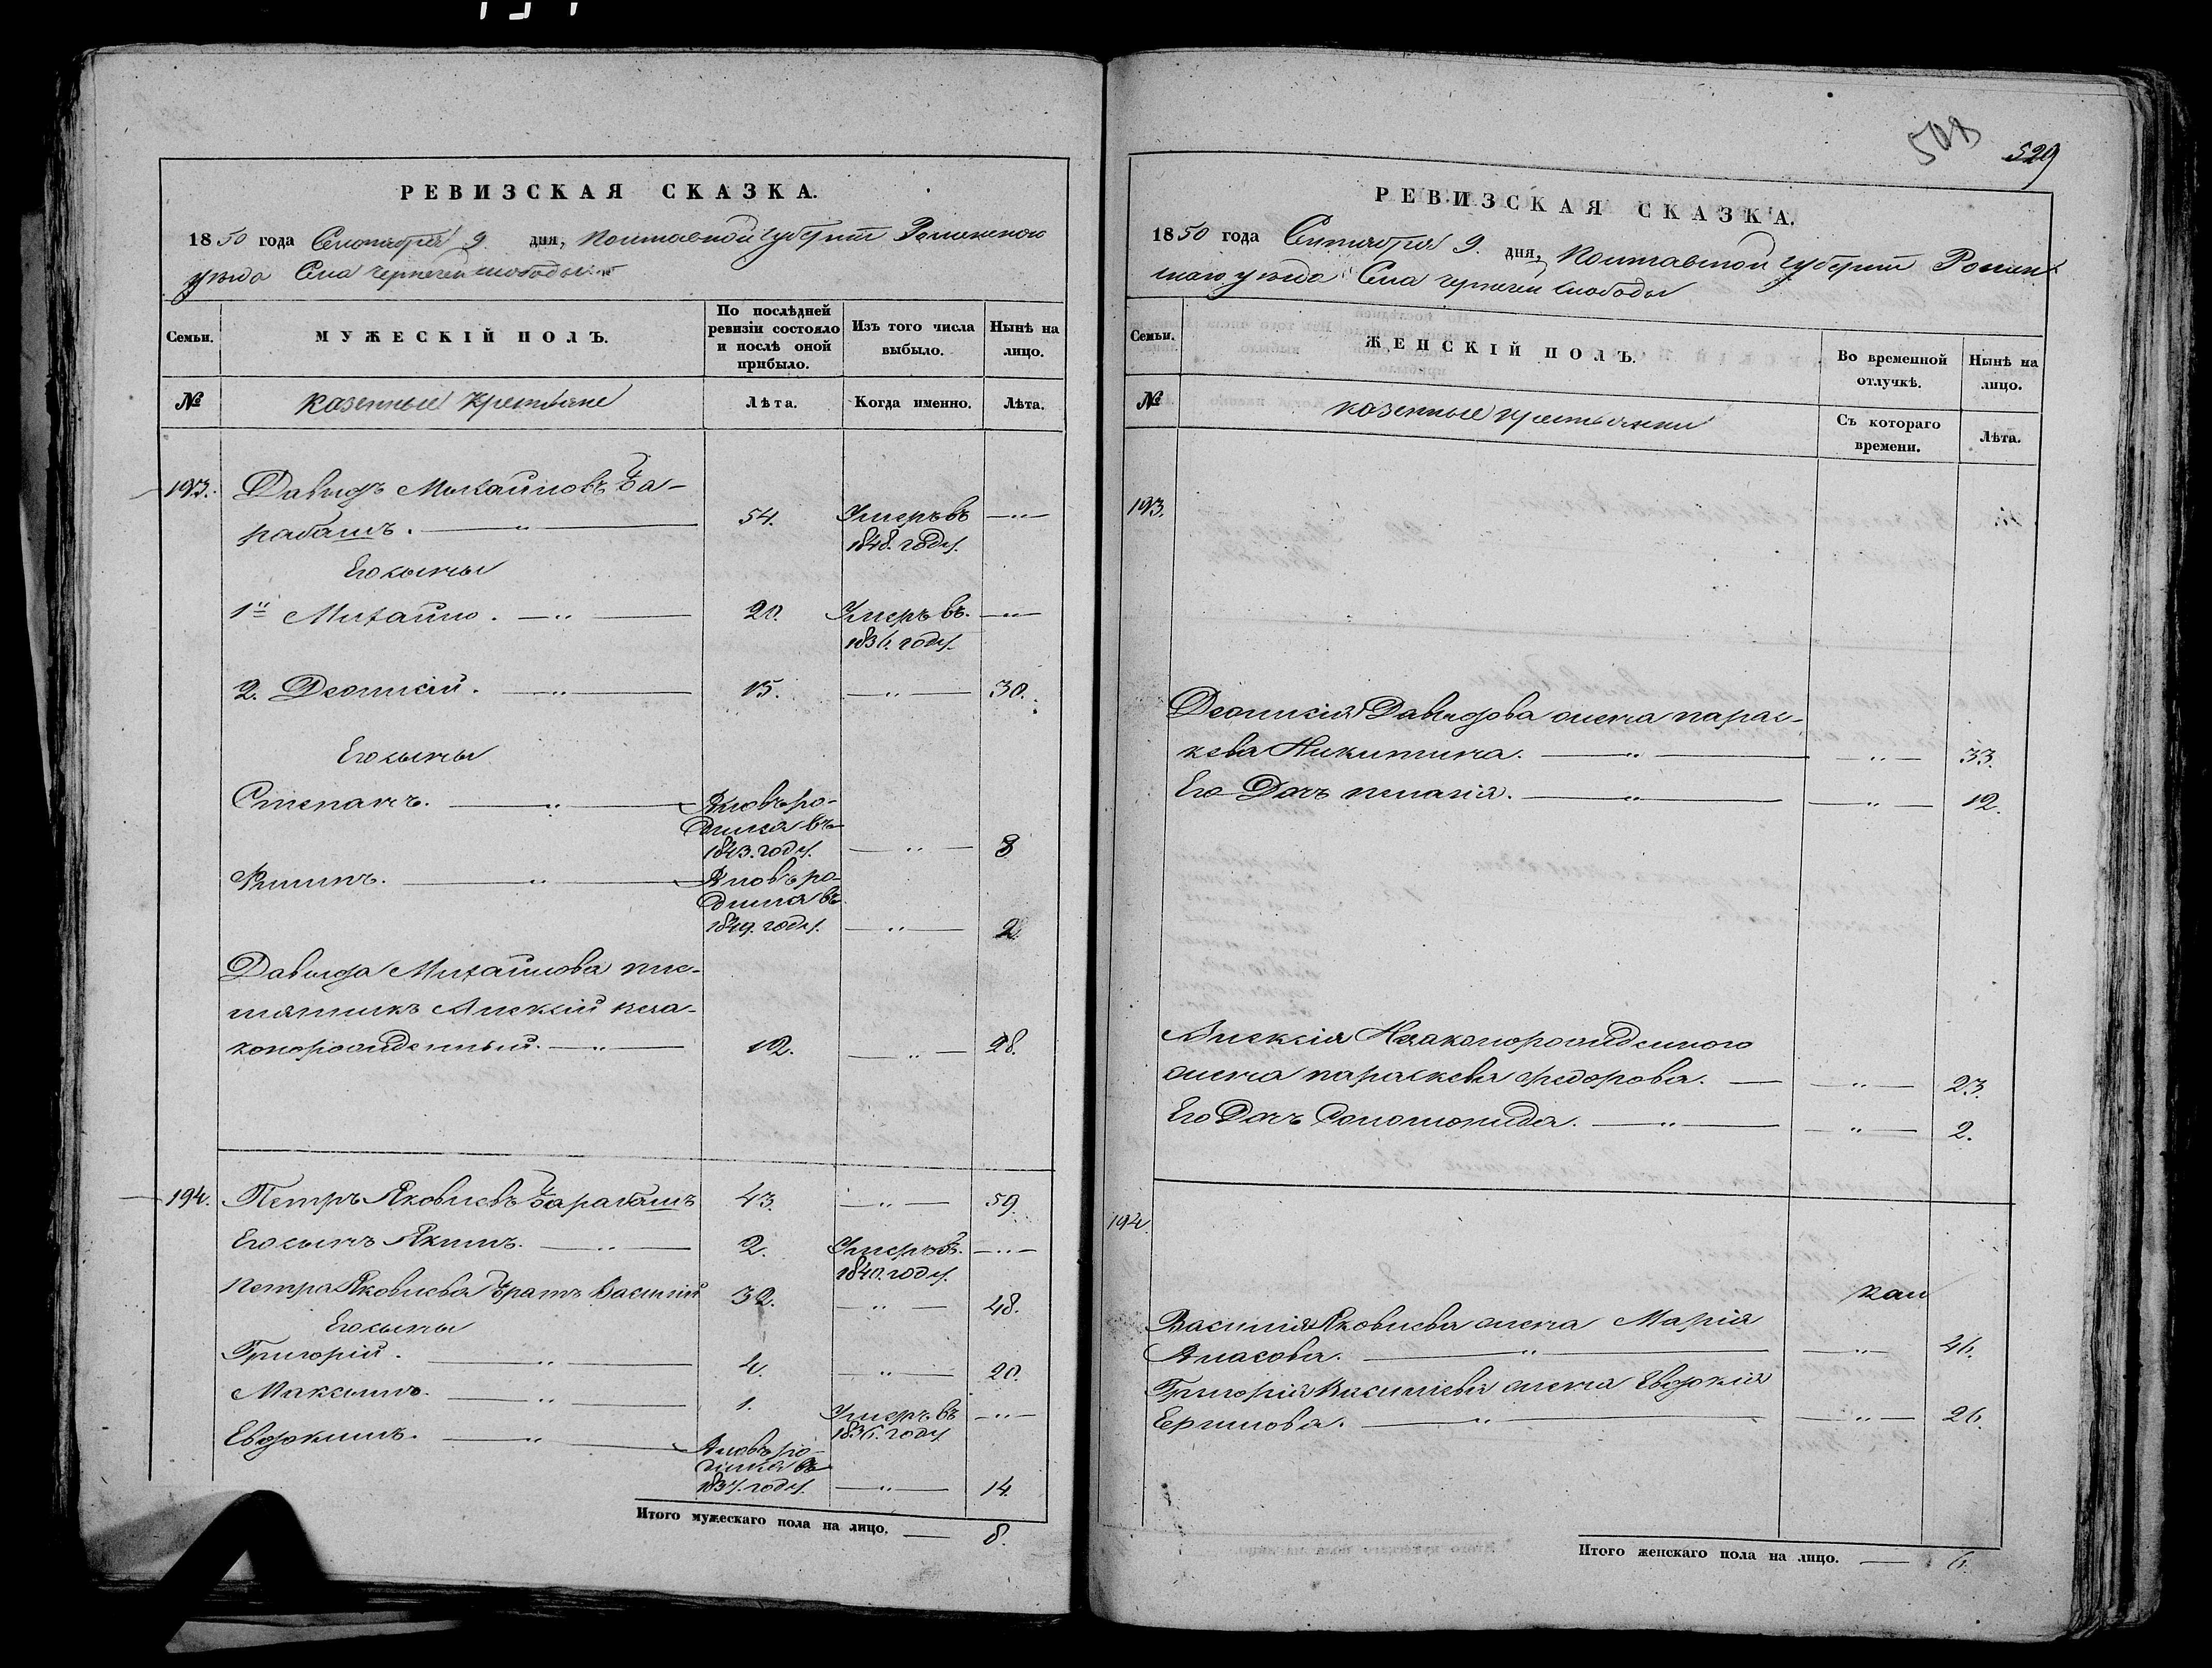 508
529
РЕВИЗСКАЯ СКАЗКА.
1850 года Сентября 9 дня, Полтавской Губерніи Роменского
уѣзда Села Чернечей слободы
Семьи.
МУЖЕСКІЙ ПОЛЪ.
По послѣдней ревизіи состояло и послѣ оной прибыло.
Изъ того числа выбыло.
Нынѣ на лицо.
№
казенные крестьяне
Лѣта.
Когда именно.
Лѣта.
193. Давыдъ Михайловъ Ба-
рабашъ. — " — 54. Умеръ въ 1848. году. — " —
Его сыны
1й Михайло. — " — 20. Умеръ въ 1836. году. — " —
2. Леонтій. — " — 15. — " — 30.
Его сыны
Степанъ. — " — Вновь ро-
дился въ
1843. году. — " — 8
Филипъ. — " — Вновь ро-
дился въ
1849. году. — " — 2
Давыда Михайлова пле-
мянникъ Алексій неза-
конорожденный. — " — 12. — " — 28.
194. Петръ Яковлевъ Барабашъ 43. — " — 59.
Его сынъ Якимъ. — " — 2. Умеръ въ 1840. году. — " —
Петра Яковлева Братъ Василій 32. — " — 48.
Его сыны
Григорій. — " — 4. — " — 20.
Максимъ. — " — 1. Умеръ въ 1836. году — " —
Евдокимъ. — " — Вновь ро-
дился въ
1837. году. — " — 14.
Итого мужескаго пола на лицо. — 8.
РЕВИЗСКАЯ СКАЗКА.
1850 года Сентября 9. дня, Полтавской Губерніи Ромен-
скаго уѣзда Села Чернечей слободы
Семьи.
ЖЕНСКІЙ ПОЛЪ.
Во временной отлучкѣ.
Нынѣ на лицо.
№
казенные крестьянки
Съ котораго времени.
Лѣта.
193.
Давыдова жена Парас-
кева Никитина. — " — 33.
Его Дочь Пелагія. — " — 12.
Алексія Незаконорожденного
жена Параскева Федорова. — " — 23.
Его Дочь Соломонида. — " — 2.
194
Василія Яковлева жена Марія
Власова. — " — 46.
Григорія Василіева жена Евдокія
— " — 26.
Итого женскаго пола на лицо. — 6.